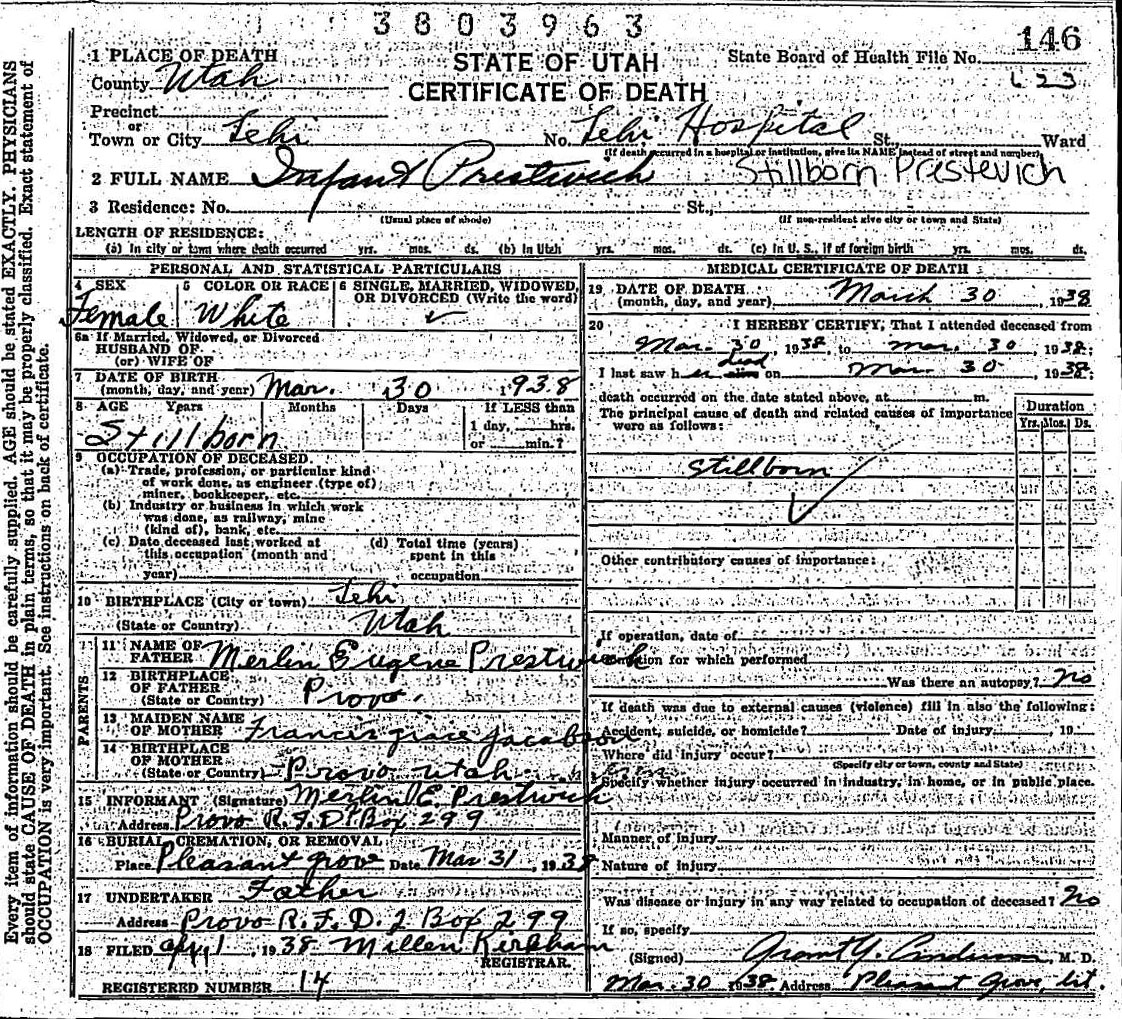 3803963
146
1 PLACE OF DEATH
STATE OF UTAH
State Board of Health File No.
County Utah
CERTIFICATE OF DEATH
623
Precinct
or
Town or City Lehi No. Lehi Hospital St. Ward
(If death occurred in a hospital or institution, give its NAME instead of street and number)
2 FULL NAME Infant Prestwich Stillborn Prestevich
3 Residence: No. St.,
(Usual place of abode) (If non-resident give city or town and State)
LENGTH OF RESIDENCE:
(a) In city or town where death occurred yrs. mos. ds. (b) In Utah yrs. mos. ds. (c) In U. S., if of foreign birth yrs. mos. ds.
PERSONAL AND STATISTICAL PARTICULARS
4 SEX 5 COLOR OR RACE 6 SINGLE, MARRIED, WIDOWED,
OR DIVORCED (Write the word)
Female White ✓
6a If Married, Widowed, or Divorced
HUSBAND OF
(or) WIFE OF
7 DATE OF BIRTH
(month, day, and year) Mar. 30 1938
8 AGE Years Months Days If LESS than
1 day, hrs.
or min.?
Stillborn
9 OCCUPATION OF DECEASED.
(a) Trade, profession, or particular kind
of work done, as engineer (type of)
miner, bookkeeper, etc.
(b) Industry or business in which work
was done, as railway, mine
(kind of), bank, etc.
(c) Date deceased last worked at (d) Total time (years)
this occupation (month and spent in this
year) occupation
10 BIRTHPLACE (City or town) Lehi
(State or Country) Utah
PARENTS
11 NAME OF
FATHER Merlin Eugene Prestwich
12 BIRTHPLACE
OF FATHER
(State or Country) Provo.
13 MAIDEN NAME
OF MOTHER Francis Grace Jacobson
14 BIRTHPLACE
OF MOTHER
(State or Country) Provo Utah
15 INFORMANT (Signature) Merlin E. Prestwich
Address Provo R.F.D. Box 299
16 BURIAL, CREMATION, OR REMOVAL
Place Pleasant Grove Date Mar 31, 1938
17 UNDERTAKER Father
Address Provo R.F.D. 2 Box 299
18 FILED Apr 1, 1938 Millen Kirkham
REGISTRAR.
REGISTERED NUMBER 14
MEDICAL CERTIFICATE OF DEATH
19 DATE OF DEATH
(month, day, and year) March 30, 1938
20 I HEREBY CERTIFY, That I attended deceased from
Mar. 30, 1938, to Mar. 30, 1938;
I last saw her alive dead on Mar. 30, 1938;
death occurred on the date stated above, at m.
The principal cause of death and related causes of importance
were as follows:
Duration
Yrs. Mos. Ds.
Stillborn
✓
Other contributory causes of importance:
If operation, date of
Condition for which performed
Was there an autopsy? No
If death was due to external causes (violence) fill in also the following:
Accident, suicide, or homicide? Date of injury 19
Where did injury occur?
(Specify city or town, county and State)
Specify whether injury occurred in industry, in home, or in public place.
Manner of injury
Nature of injury
Was disease or injury in any way related to occupation of deceased? No
If so, specify
(Signed) Grant Y. Anderson, M. D.
Mar. 30 1938 Address Pleasant Grove, Ut.
Every item of information should be carefully supplied. AGE should be stated EXACTLY. PHYSICIANS
should state CAUSE OF DEATH in plain terms, so that it may be properly classified. Exact statement of
OCCUPATION is very important. See instructions on back of certificate.